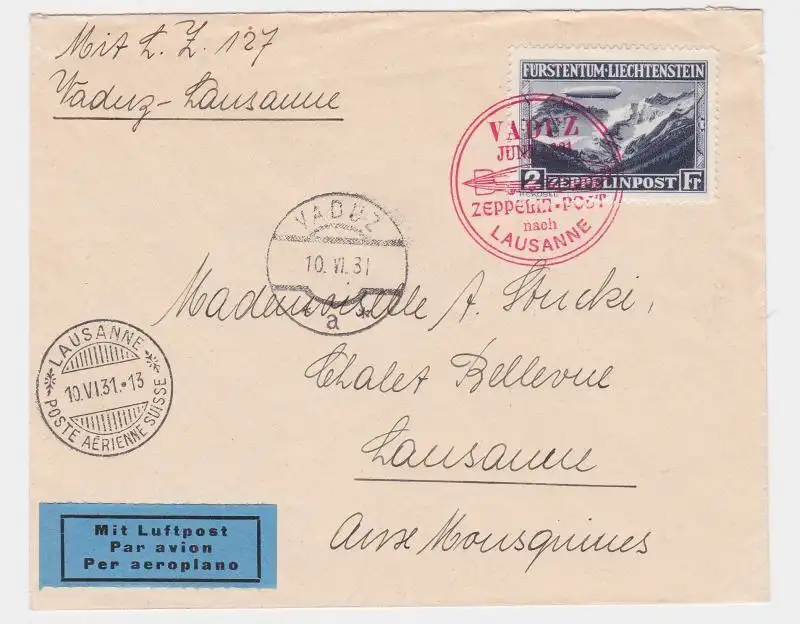 Mit L. Z. 127
Vaduz-Lausanne
FÜRSTENTUM·LIECHTENSTEIN
2 ZEPPELINPOST Fr
VADUZ
JUNI
ZEPPELIN-POST
nach
LAUSANNE
VADUZ
10. VI. 31
* a *
Mademoiselle A. Stucki,
Chalet Bellevue
Lausanne
Avx Mousquines
LAUSANNE
10.VI.31.-13
POSTE AÉRIENNE SUISSE
Mit Luftpost
Par avion
Per aeroplano